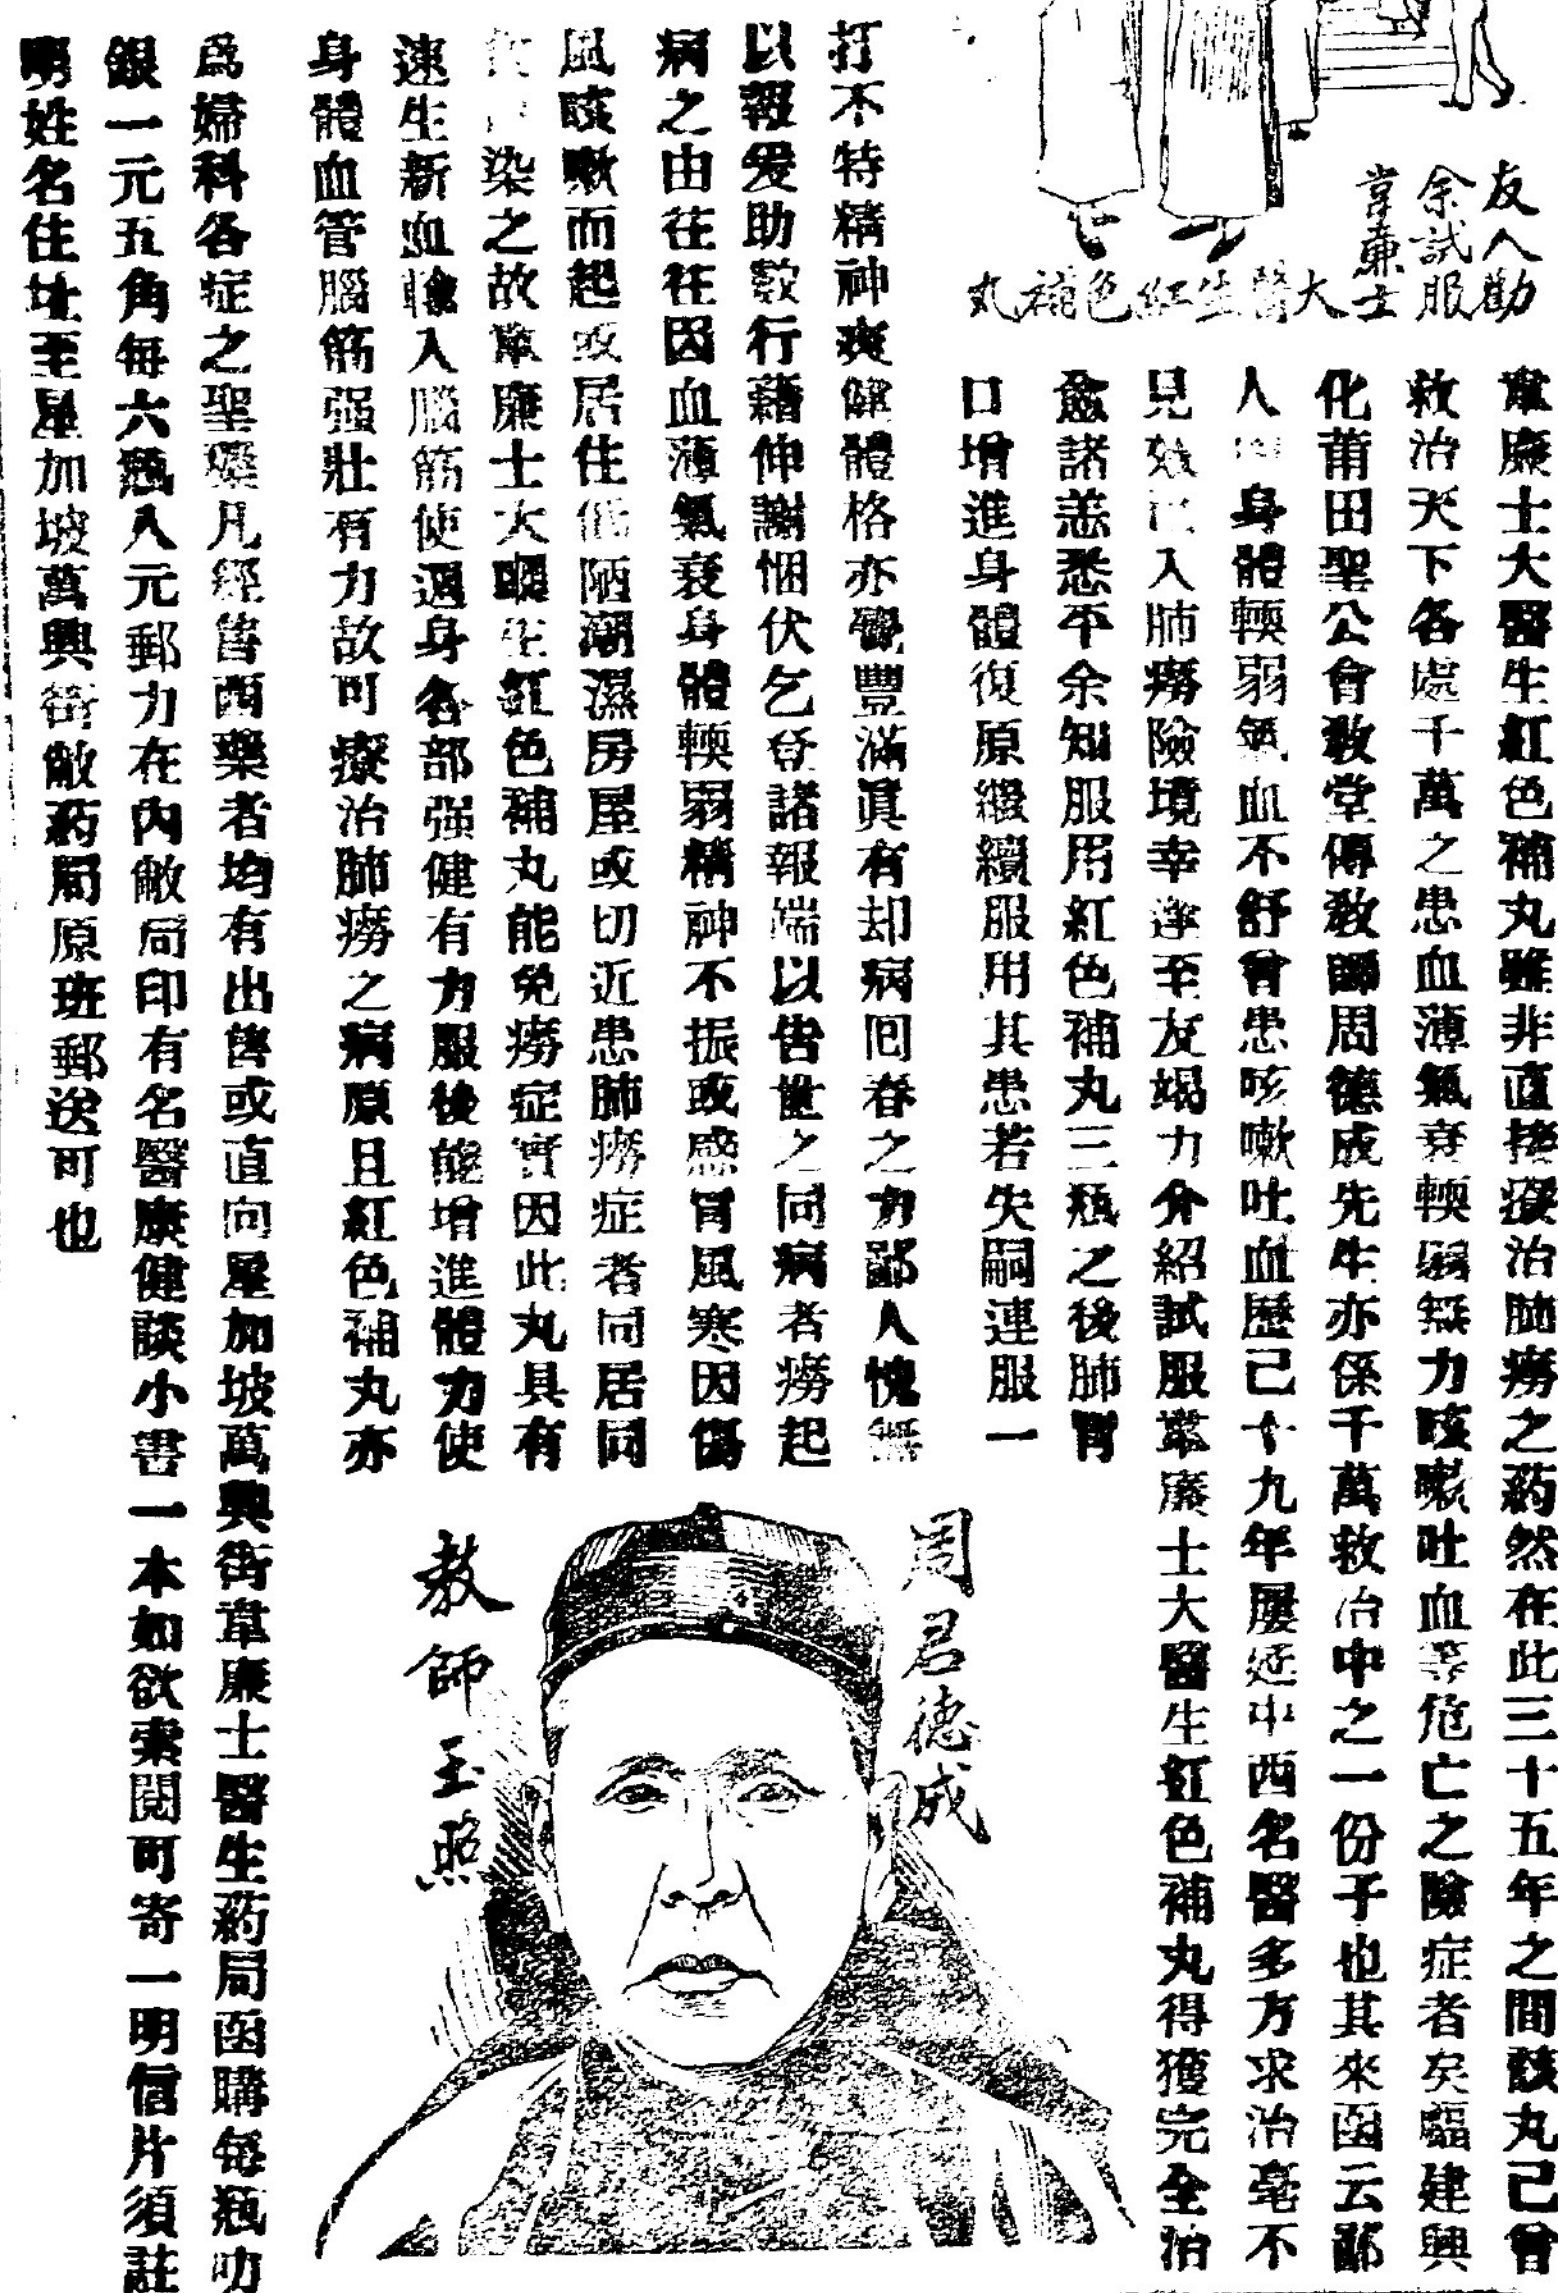 友人勸
余試服
韋廉士
大醫生紅色補丸
韋廉士大醫生紅色補丸雖非直接療治肺癆之药然在此三十五年之間該丸已曾
救治天下各處千萬之患血薄氣衰輭弱無力咳嗽吐血等危亡之險症者矣福建興
化莆田聖公會敎堂傳敎師周德成先生亦係千萬救治中之一份子也其來函云鄙
人身體輭弱氣血不舒曾患咳嗽吐血歷己十九年屢延中西名醫多方求治毫不
見效已入肺癆險境幸逢至友竭力介紹試服韋廉士大醫生紅色補丸得獲完全治
愈諸恙悉平余知服用紅色補丸三瓶之後肺胃
口增進身體復原繼續服用其患若失嗣連服一
打不特精神爽健體格亦覺豐滿眞有却病囘春之力鄙人愧無
以報爰助數行藉伸謝悃伏乞登諸報端以告世之同病者癆起
病之由往往因血薄氣衰身體輭弱精神不振或感冒風寒因傷
風咳嗽而起或居住低陋潮濕房屋或切近患肺癆症者同居同
染之故韋廉士大醫生紅色補丸能免癆症實因此丸具有
速生新血輸入腦筋使週身各部强健有力服後能增進體力使
身體血管腦筋强壯有力故可療治肺癆之病原且紅色補丸亦
周君德成
敎師玉照
爲婦科各症之聖藥凡經售西藥者均有出售或直向星加坡萬興街韋廉士醫生药局函購每瓶叻
銀一元五角每六瓶八元郵力在內敝局印有名醫康健談小書一本如欲索閱可寄一明信片須註
明姓名住址至星加坡萬興街敝药局原班郵送可也